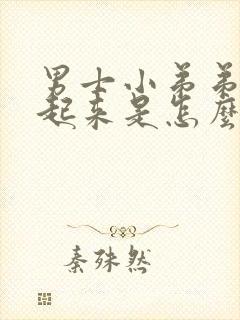 男士小弟弟
起来是怎麼
秦殊然